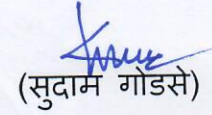 (सुदाम गोडसे)